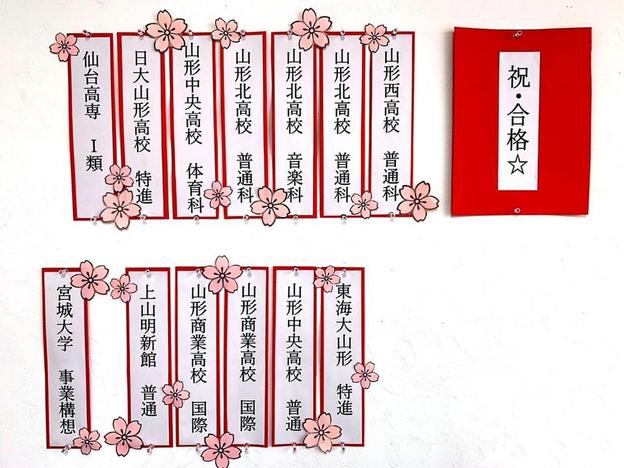 祝・合格☆
山形西高校 普通科
山形北高校 普通科
山形北高校 音楽科
山形北高校 普通科
山形中央高校 体育科
日大山形高校 特進
仙台高専 Ⅰ類
東海大山形 特進
山形中央高校 普通
山形商業高校 国際
山形商業高校 国際
上山明新館 普通
宮城大学 事業構想